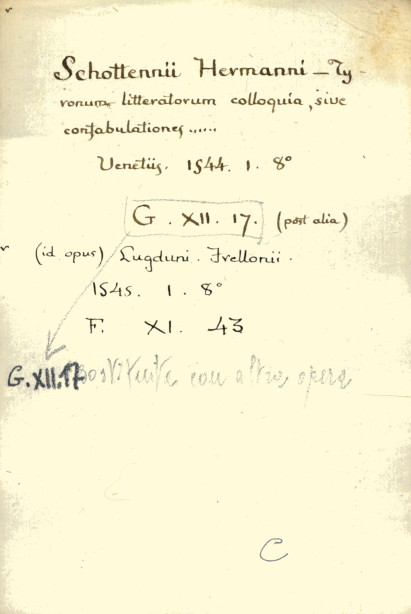 Schottennii Hermanni — Ty-
ronum litteratorum colloquia, sive
confabulationes ......
Venetiis. 1544. 1. 8°
G. XII. 17. (post alia)
(id opus) Lugduni. Frellonii.
1545. 1. 8°
F. XI. 43
G.XII.17 sostituite con altra opera
C